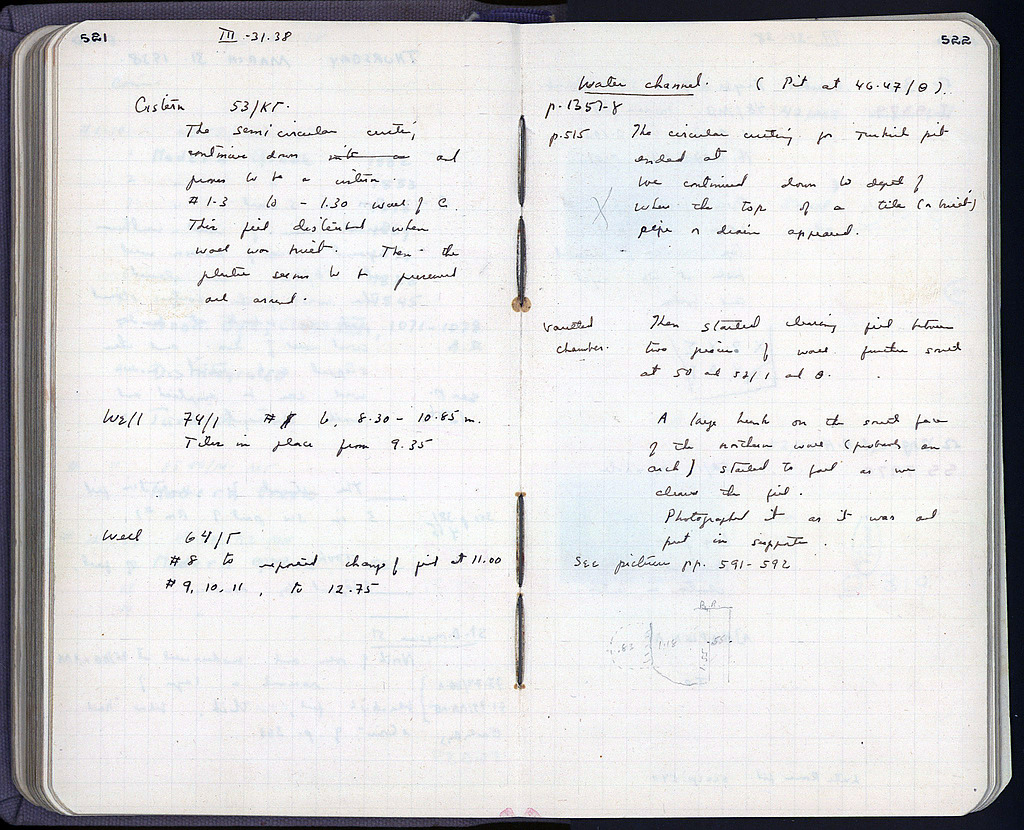 521
III -31.38
Cistern 53/ΚΓ.
The semicircular cutting
continues down and
proves to be a cistern.
#1-3 to -1.30 wall of C.
This fill disturbed when
wall was built. Then the
plaster seems to be preserved
all around.
Well 74/1 # 6. 8.30 - 10.85 m.
Tiles in place from 9.35
Well 64/Γ
#8 to reported change of fill at 11.00
#9, 10, 11, to 12.75
522
Water channel. ( Pit at 46-47/Θ ).
p.1357-8
p.515 The circular cutting for Turkish pit
ended at
We continued down to depth of
when the top of a tile (or brick)
pipe or drain appeared.
Vaulted Then started clearing fill between
chamber. two pieces of wall further south
at 50 and 52/1 and Θ.
A large hunk on the south face
of the northern wall (probably an
arch) started to fall as we
cleared the fill.
Photographed it as it was and
put in supports.
See pictures pp. 591-592
.83 1.18 .55
1.55